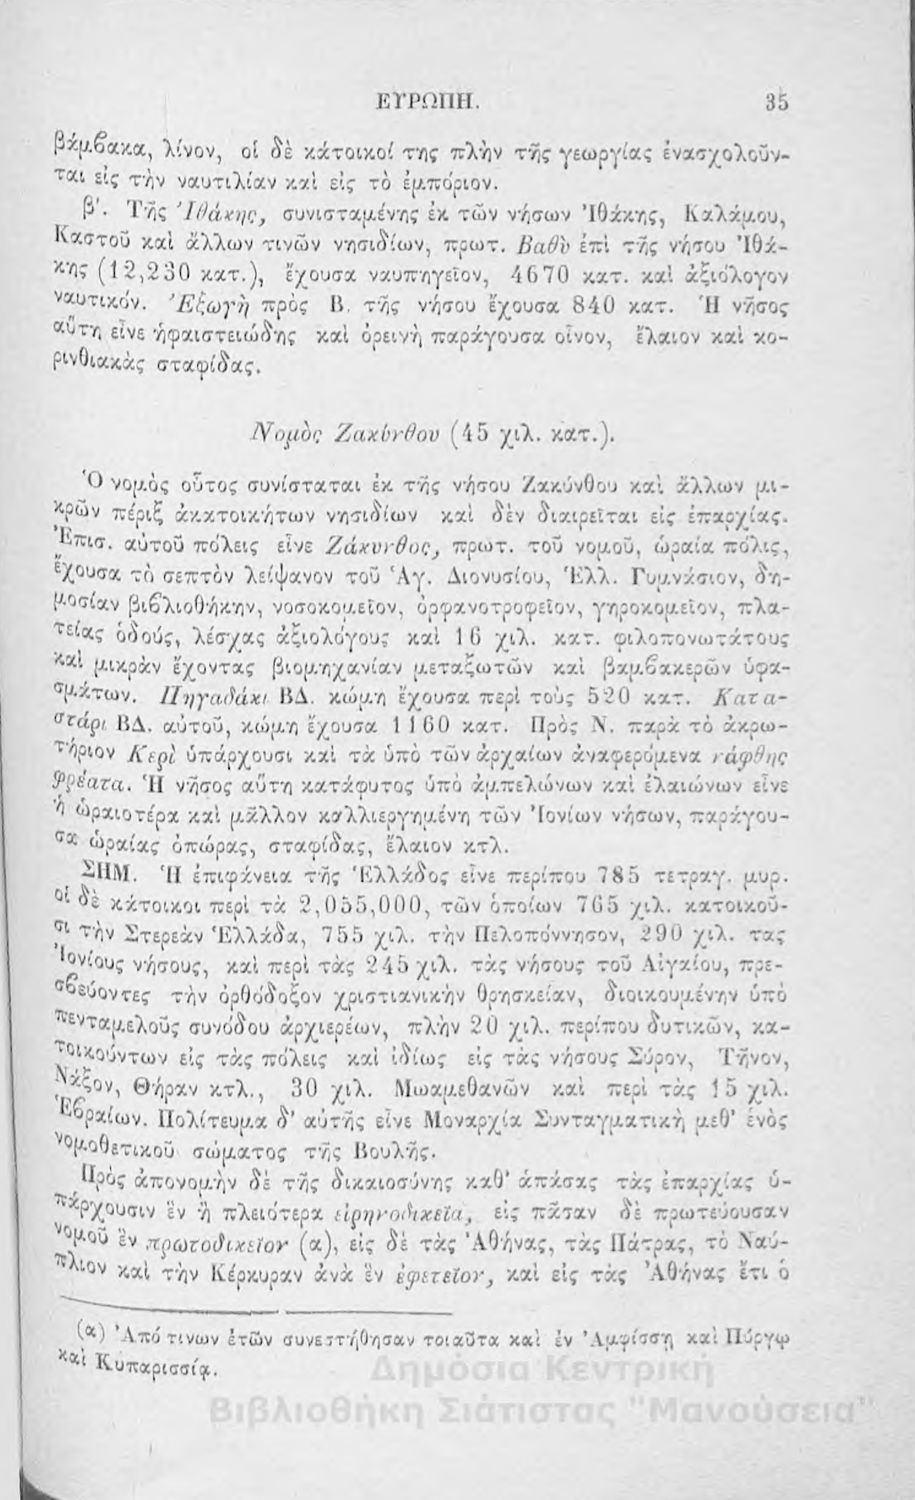 ΕΥΡΩΠΗ. 35
βάμβακα, λίνον, οἱ δὲ κάτοικοί της πλὴν τῆς γεωργίας ἐνασχολοῦν-
ται εἰς τὴν ναυτιλίαν καὶ εἰς τὸ ἐμπόριον.
β'. Τῆς Ἰθάκης, συνισταμένης ἐκ τῶν νήσων Ἰθάκης, Καλάμου,
Καστοῦ καὶ ἄλλων τινῶν νησιδίων, πρωτ. Βαθὺ ἐπὶ τῆς νήσου Ἰθά-
κης (12,230 κατ.), ἔχουσα ναυπηγεῖον, 4670 κατ. καὶ ἀξιόλογον
ναυτικόν. Ἐξωγὴ πρὸς Β. τῆς νήσου ἔχουσα 840 κατ. Ἡ νῆσος
αὕτη εἶνε ἡφαιστειώδης καὶ ὀρεινὴ παράγουσα οἶνον, ἔλαιον καὶ κο-
ρινθιακὰς σταφίδας.
Νομὸς Ζακύνθου (45 χιλ. κατ.).
Ὁ νομὸς οὗτος συνίσταται ἐκ τῆς νήσου Ζακύνθου καὶ ἄλλων μι-
κρῶν πέριξ ἀκατοικήτων νησιδίων καὶ δὲν διαιρεῖται εἰς ἐπαρχίας.
Ἐπισ. αὐτοῦ πόλεις εἶνε Ζάκυνθος, πρωτ. τοῦ νομοῦ, ὡραία πόλις,
ἔχουσα τὸ σεπτὸν λείψανον τοῦ Ἁγ. Διονυσίου, Ἑλλ. Γυμνάσιον, δη-
μοσίαν βιβλιοθήκην, νοσοκομεῖον, ὀρφανοτροφεῖον, γηροκομεῖον, πλα-
τείας ὁδούς, λέσχας ἀξιολόγους καὶ 16 χιλ. κατ. φιλοπονωτάτους
καὶ μικρὰν ἔχοντας βιομηχανίαν μεταξωτῶν καὶ βαμβακερῶν ὑφα-
σμάτων. Πηγαδάκι ΒΔ. κώμη ἔχουσα περὶ τοὺς 520 κατ. Κατα-
στάρι ΒΔ. αὐτοῦ, κώμη ἔχουσα 1160 κατ. Πρὸς Ν. παρὰ τὸ ἀκρω-
τήριον Κερὶ ὑπάρχουσι καὶ τὰ ὑπὸ τῶν ἀρχαίων ἀναφερόμενα νάφθης
φρέατα. Ἡ νῆσος αὕτη κατάφυτος ὑπὸ ἀμπελώνων καὶ ἐλαιώνων εἶνε
ἡ ὡραιοτέρα καὶ μᾶλλον καλλιεργημένη τῶν Ἰονίων νήσων, παράγου-
σα ὡραίας ὀπώρας, σταφίδας, ἔλαιον κτλ.
ΣΗΜ. Ἡ ἐπιφάνεια τῆς Ἑλλάδος εἶνε περίπου 785 τετραγ. μυρ.
οἱ δὲ κάτοικοι περὶ τὰ 2,055,000, τῶν ὁποίων 765 χιλ. κατοικοῦ-
σι τὴν Στερεὰν Ἑλλάδα, 755 χιλ. τὴν Πελοπόννησον, 290 χιλ. τας
Ἰονίους νήσους, καὶ περὶ τὰς 245 χιλ. τὰς νήσους τοῦ Αἰγαίου, πρε-
σβεύοντες τὴν ὀρθόδοξον χριστιανικὴν θρησκείαν, διοικουμένην ὑπὸ
πενταμελοῦς συνόδου ἀρχιερέων, πλὴν 20 χιλ. περίπου δυτικῶν, κα-
τοικούντων εἰς τὰς πόλεις καὶ ἰδίως εἰς τὰς νήσους Σύρον, Τῆνον,
Νάξον, Θήραν κτλ., 30 χιλ. Μωαμεθανῶν καὶ περὶ τὰς 15 χιλ.
Ἑβραίων. Πολίτευμα δ' αὐτῆς εἶνε Μοναρχία Συνταγματικὴ μεθ' ἑνὸς
νομοθετικοῦ σώματος τῆς Βουλῆς.
Πρὸς ἀπονομὴν δὲ τῆς δικαιοσύνης καθ' ἁπάσας τὰς ἐπαρχίας ὑ-
πάρχουσιν ἓν ἢ πλειότερα εἰρηνοδικεῖα, εἰς πᾶσαν δὲ πρωτεύουσαν
νομοῦ ἓν πρωτοδικεῖον (α), εἰς δὲ τὰς Ἀθήνας, τὰς Πάτρας, τὸ Ναύ-
πλιον καὶ τὴν Κέρκυραν ἀνὰ ἓν ἐφετεῖον, καὶ εἰς τὰς Ἀθήνας ἔτι ὁ
(α) Ἀπό τινων ἐτῶν συνεστήθησαν τοιαῦτα καὶ ἐν Ἀμφίσσῃ καὶ Πύργῳ
καὶ Κυπαρισσίᾳ.
Δημόσια Κεντρική
Βιβλιοθήκη Σιάτιστας "Μανούσεια"